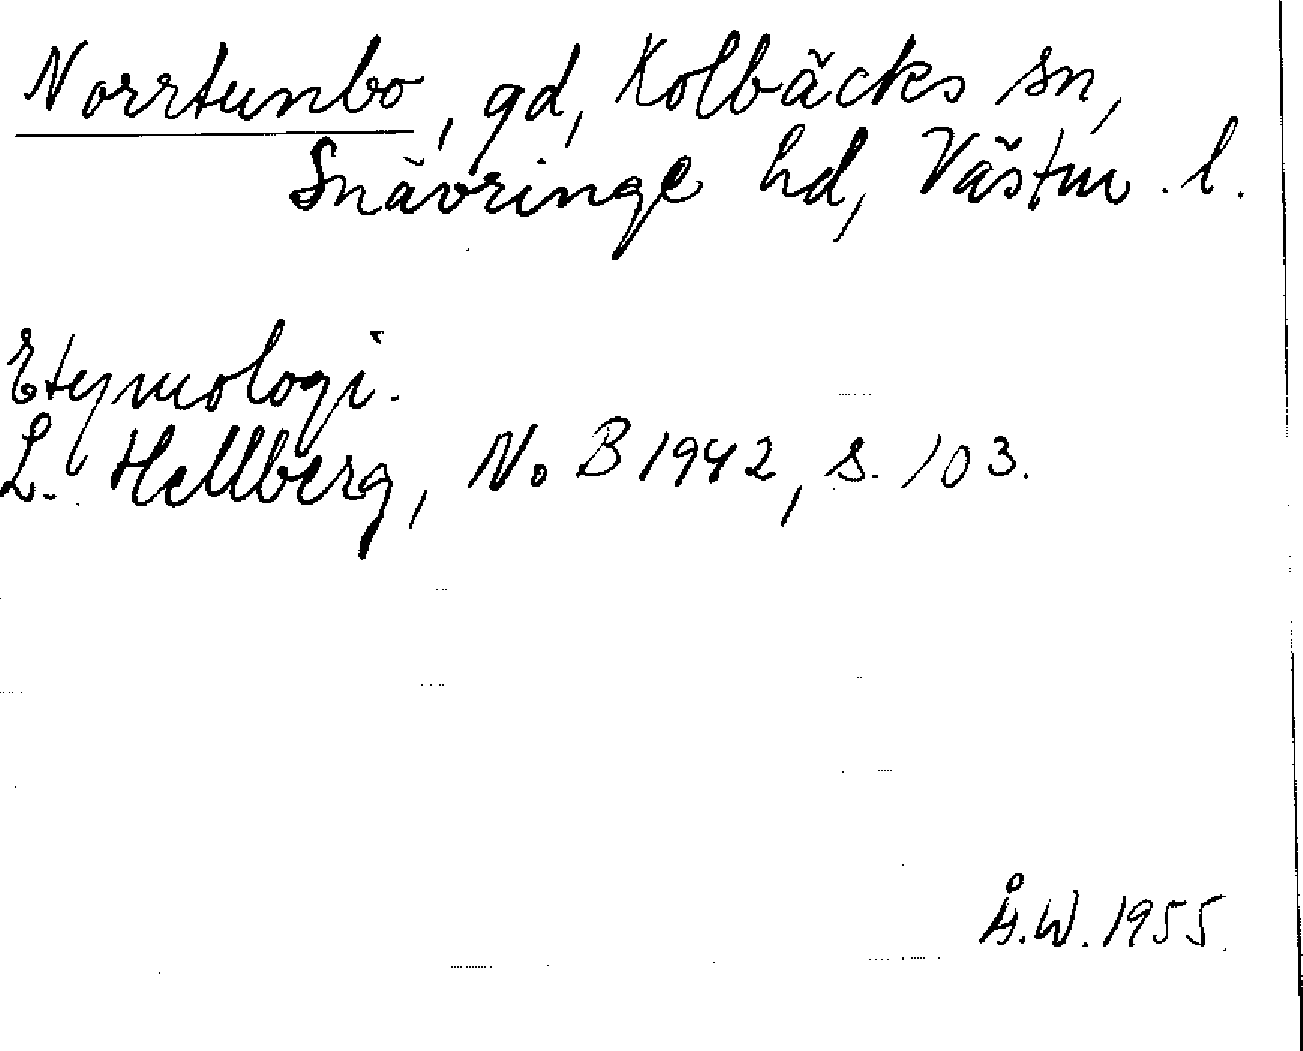 Norrtunbo, gd, Kolbäcks sn,
Snävringe hd, Västm. l.
Etymologi.
L. Hellberg, No B 1942, s. 103.
Å.W. 1955.